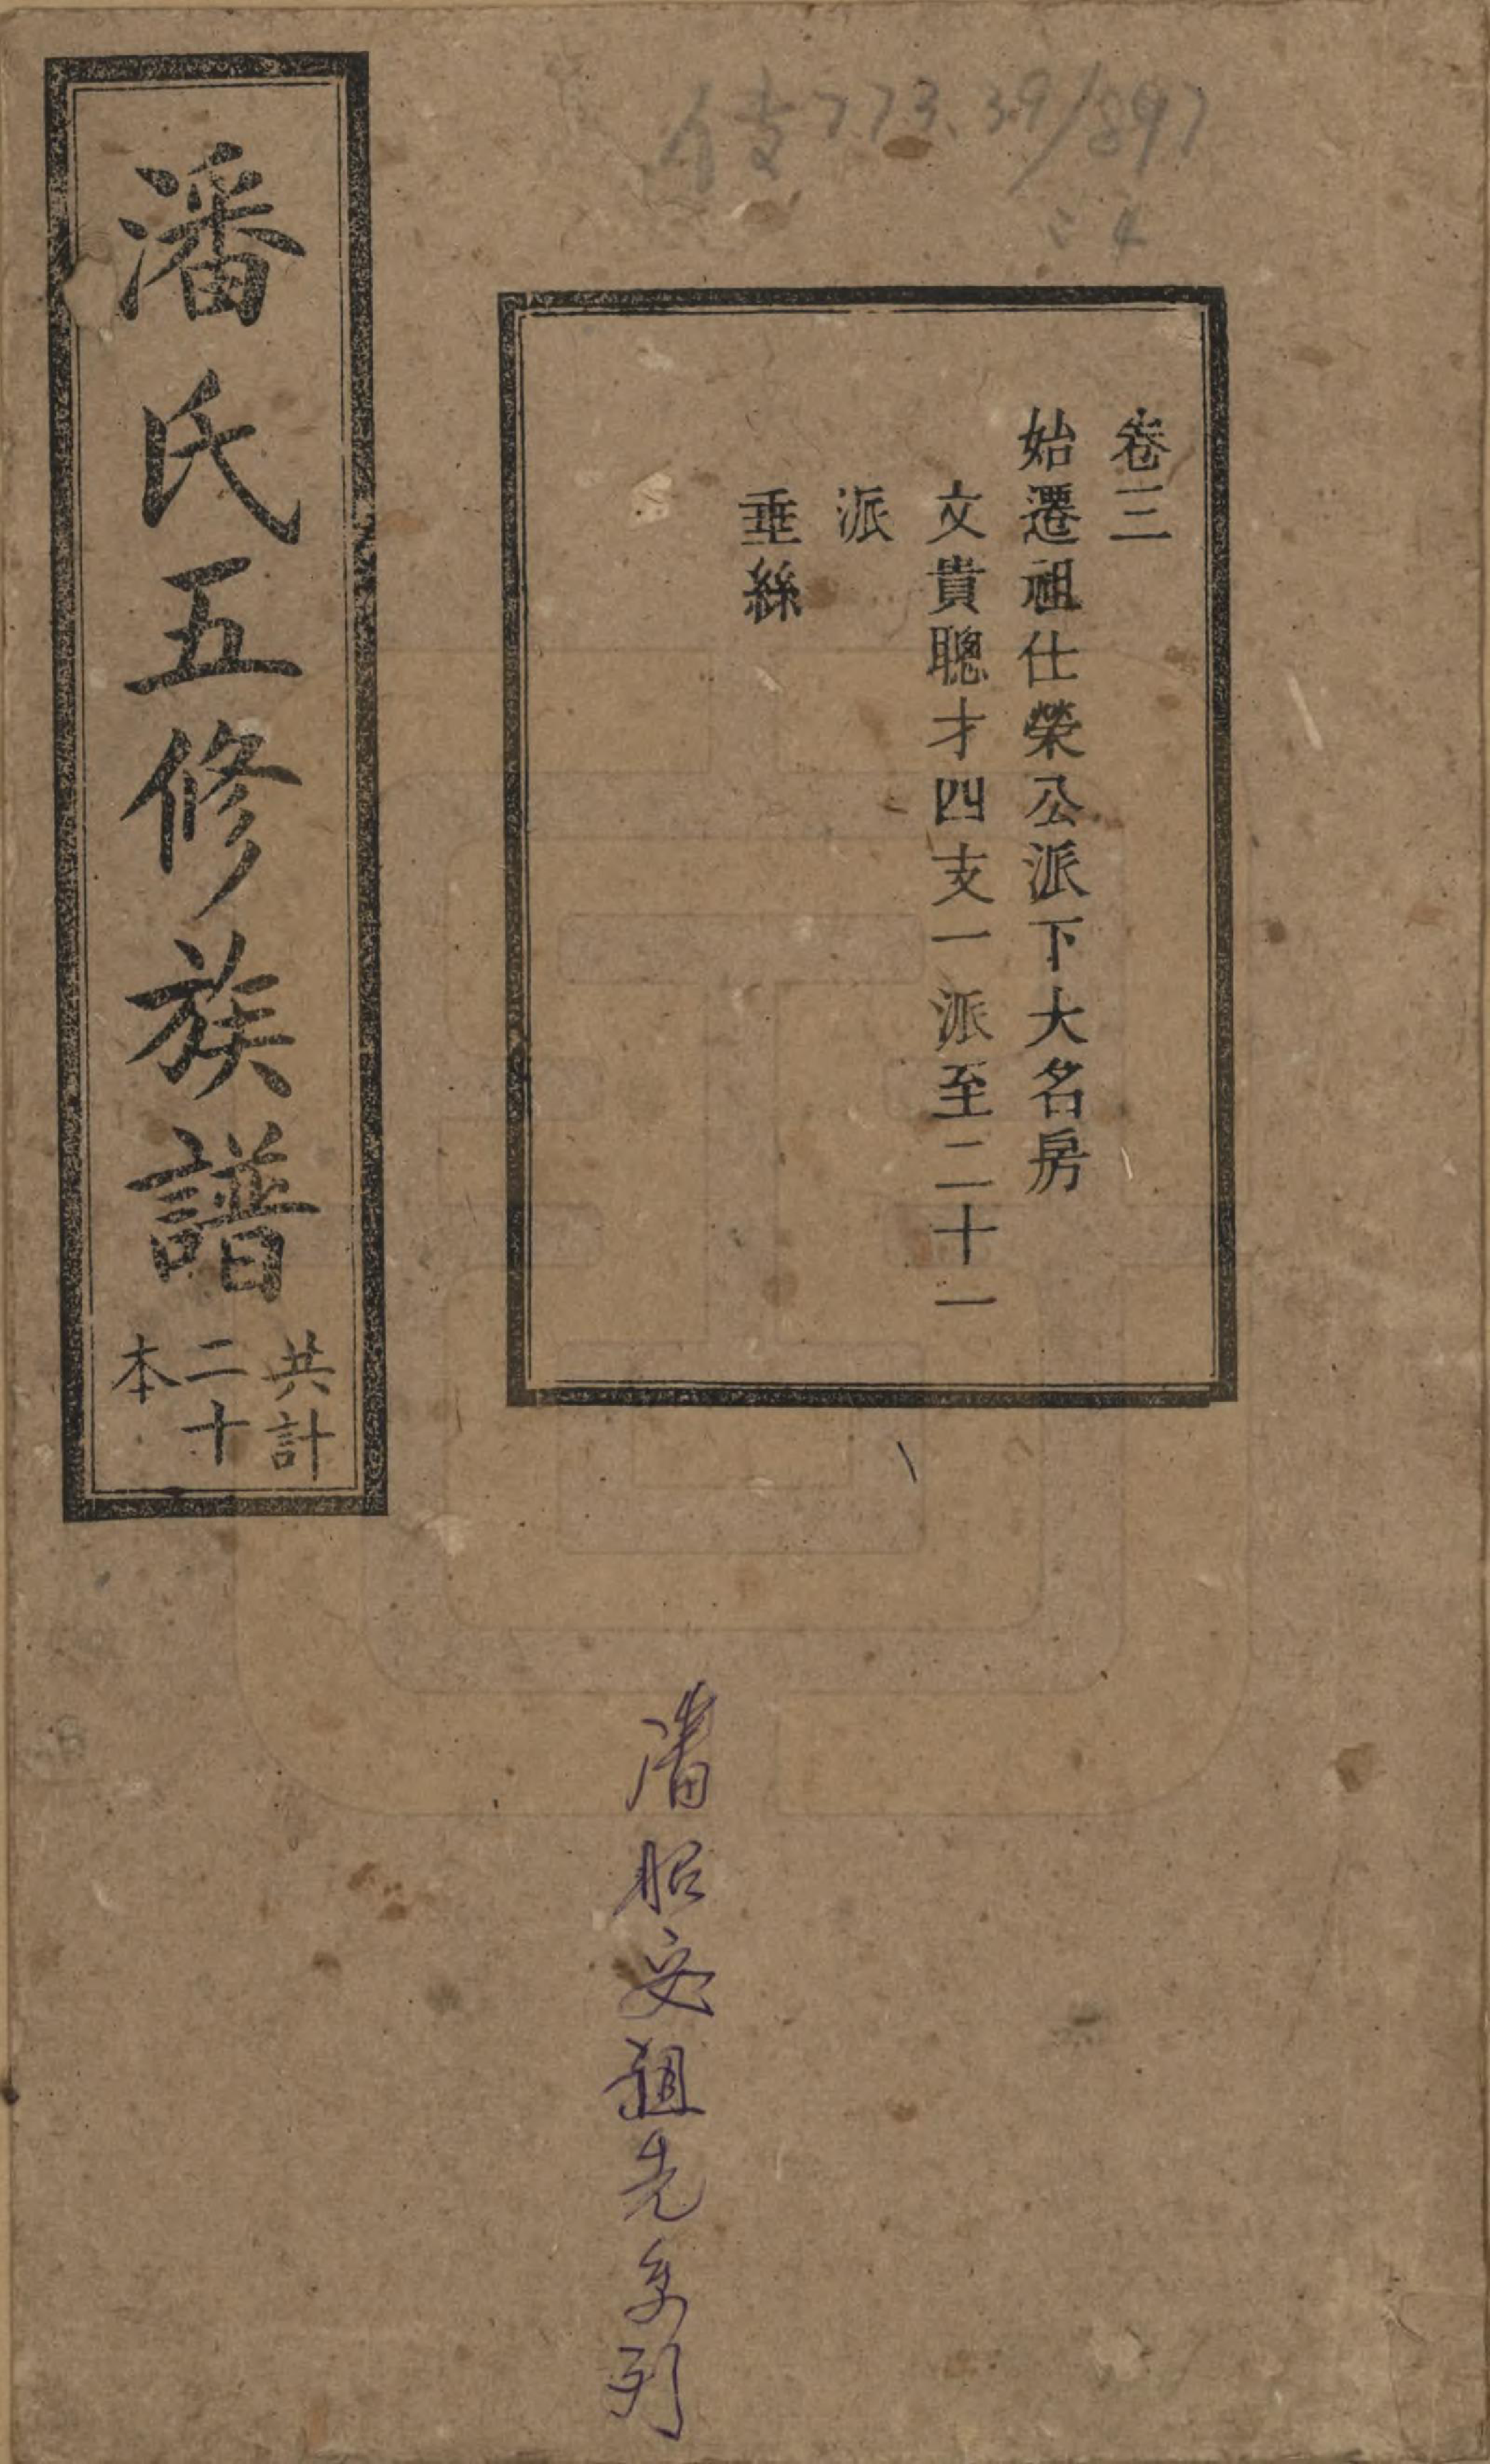 潘氏五修族譜
共計
二十
本
卷三
始遷祖仕榮公派下大名房
文貴聰才四支一派至二十一
派
垂絲
773.39/897
潘昭安祖先系列